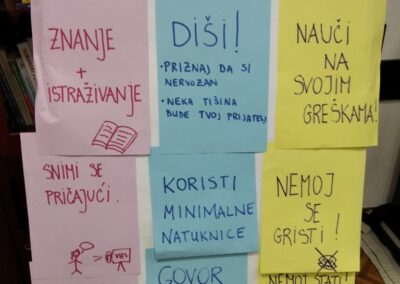 ZNANJE
+
ISTRAŽIVANJE
DIŠI!
• PRIZNAJ DA SI
NERVOZAN
• NEKA TIŠINA
BUDE TVOJ PRIJATELJ
NAUČI
NA
SVOJIM
GREŠKAMA!
SNIMI SE
PRIČAJUĆI.
VHS
KORISTI
MINIMALNE
NATUKNICE
NEMOJ
SE
GRISTI!
GOVOR
NEMOJ STATI!